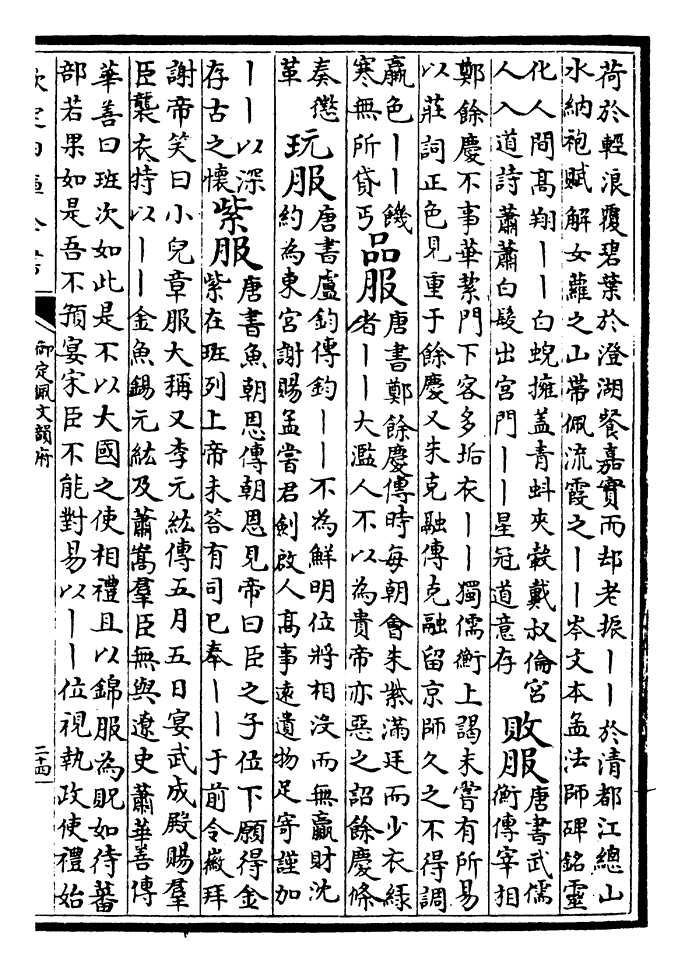 荷於輕浪覆碧葉於澄湖餐嘉實而却老振丨丨於清都江總山
水納袍賦解女蘿之山帶佩流霞之丨丨岑文本孟法師碑銘靈
化人間髙翔丨丨白蜺擁盖青虯夾轂戴叔倫宮
人入道詩蕭蕭白髮出宮門丨丨星冠道意存
敗服
唐書武儒
衡傳宰相
鄭餘慶不事華絜門下客多垢衣丨丨獨儒衡上謁未嘗有所易
以莊詞正色見重于餘慶又朱克融傳克融留京師久之不得調
羸色丨丨饑
寒無所貸丐
品服
唐書鄭餘慶傳時每朝會朱紫滿廷而少衣綠
者丨丨大濫人不以為貴帝亦惡之詔餘慶條
奏懲
革
玩服
唐書盧鈞傳鈞丨丨不為鮮明位將相沒而無贏財沈
約為東宮謝賜孟嘗君劍啟人髙事遠遺物足寄謹加
丨丨以深
存古之懷
紫服
唐書魚朝恩傳朝恩見帝曰臣之子位下願得金
紫在班列上帝未答有司已奉丨丨于前令㣲拜
謝帝笑曰小兒章服大稱又李元紘傳五月五日宴武成殿賜羣
臣襲衣特以丨丨金魚錫元紘及蕭嵩羣臣無與遼史蕭華善傳
華善曰班次如此是不以大國之使相禮且以錦服為貺如待蕃
部若果如是吾不預宴宋臣不能對易以丨丨位視執政使禮始
欽定四庫全書
御定佩文韻府
二十四